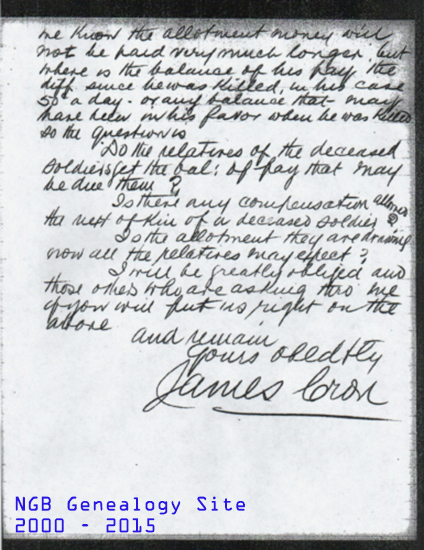 we know the allotment money will
not be paid very much longer, but
where is the balance of his pay, the
diff. since he was killed, in his case
50 a day - or any balance that may
have been in his favor when he was killed
so the question is
Do the relatives of the deceased
soldiers get the bal: of pay that may
be due them?
Is there any compensation allowed
the next of Kin of a deceased soldier?
Is the allotment they are drawing
now all the relatives may expect?
I will be greatly obliged and
those others who are asking thro me
if you will put us right on the
above
and remain
Yours obedtly
James Cron
NGB Genealogy Site
2000 - 2015